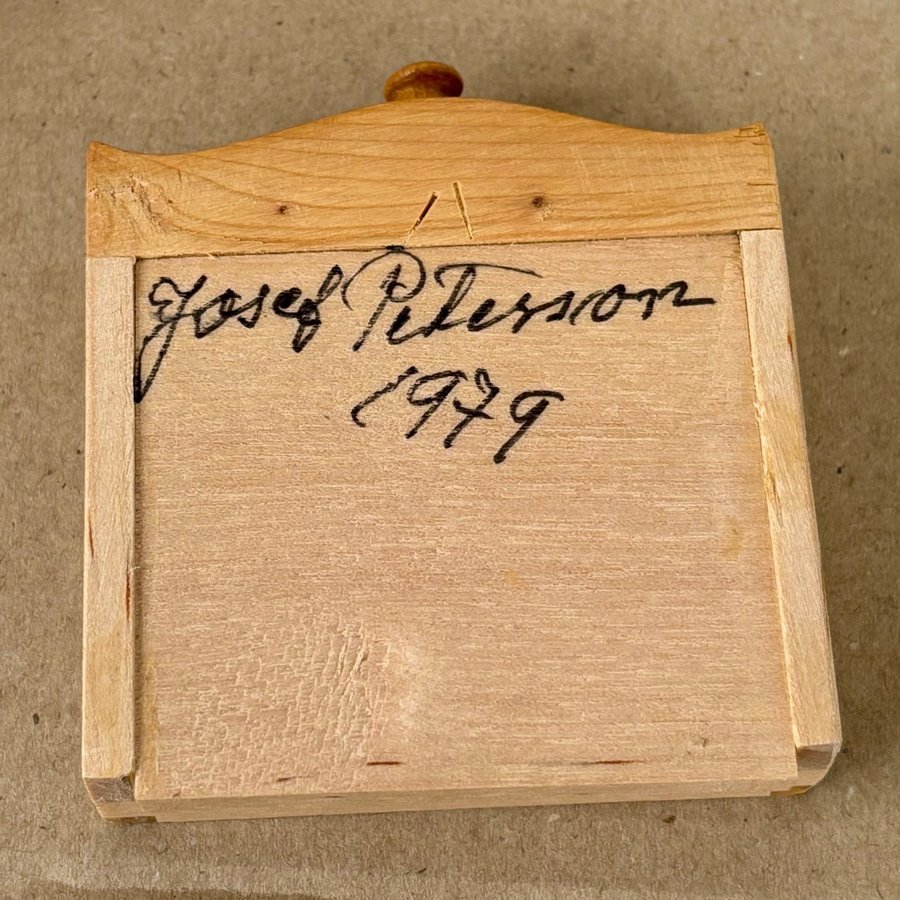 Josef Peterson
1979